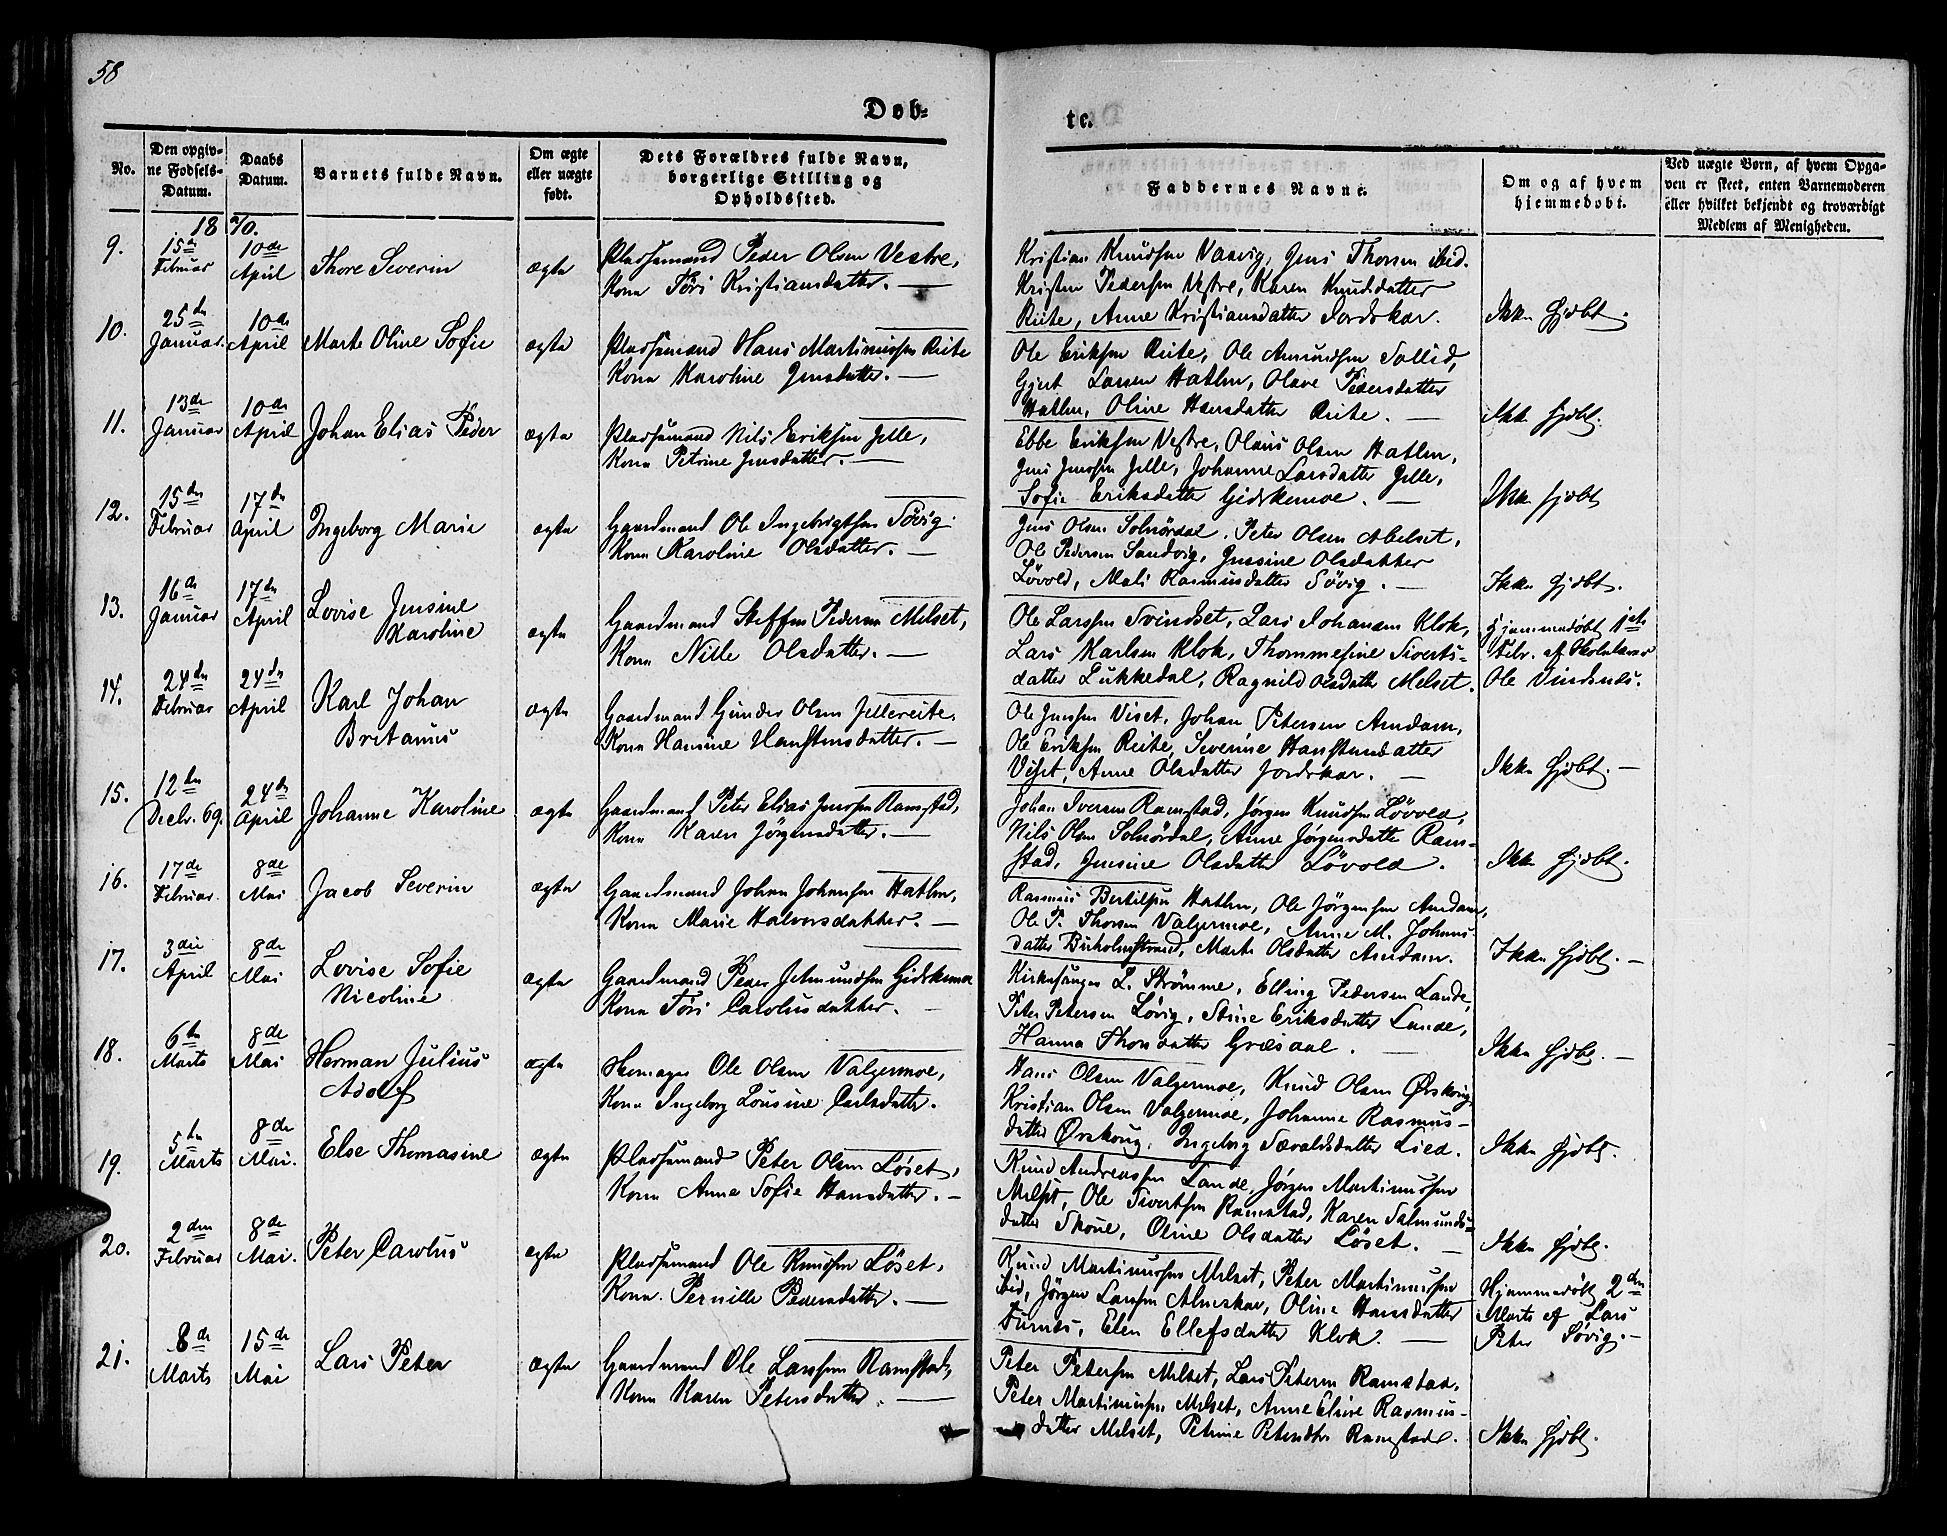 58
Døb-
te.
No.
Den opgiv-
ne Fødsels-
Datum.
Daabs
Datum.
Barnets fulde Navn.
Om ægte
eller uægte
født.
Dets Forældres fulde Navn,
borgerlige Stilling og
Opholdssted.
Faddernes Navne.
Om og af hvem
hjemmedøbt.
Ved uægte Børn, af hvem Opga-
ven er skeet, enten Barnemoderen
eller hvilket bekjendt og troværdigt
Medlem af Menigheden.
1870.
9.
15de
Februar
10de
April
Thore Severin
ægte
Pladsemand Peder Olsen Vestre,
Kone Töri Kristiansdatter. —
Kristian Knudsen Vaavig, Jens Thorsen ibid.
Kristen Pedersen Vestre, Karen Knudsdatter
Reite, Anne Kristiansdatter Jordskar.
Ikke hjdbt.
10.
25de
Januar.
10de
April
Marte Oline Sofie
ægte
Pladsemand Hans Martinussen Reite
Kone Karoline Jensdatter. —
Ole Eriksen Reite, Ole Amundsen Sollid,
Gjert Larsen Hatlen, Olave Pedersdatter
Hatlen, Oline Hansdatter Reite. —
Ikke hjdbt.
11.
13de
Januar
10de
April
Johan Elias Peder
ægte
Pladsemand Nils Eriksen Jelle,
Kone Petrine Jensdatter. —
Ebbe Eriksen Vestre, Olaus Olsen Hatlen,
Jens Jensen Jelle, Johanne Larsdatter Jelle,
Sofie Eriksdatter Gidskemoe. —
Ikke hjdbt
12.
15de
Februar
17de
April
Ingeborg Marie
ægte
Gaardmand Ole Ingebrigtsen Sövig
Kone Karoline Olsdatter. —
Jens Olsen Solnördal, Peter Olsen Abelset,
Ole Pedersen Sandvig, Jensine Olsdatter
Lövold, Mali Rasmusdatter Sövig. —
Ikke hjdbt.
13.
16de
Januar
17de
April
Lovise Jensine
Karoline
ægte
Gaardmand Steffen Pedersen Melset,
Kone Nille Olsdatter. —
Ole Larssen Svindset, Lars Johansen Klok,
Lars Karlsen Klok, Thommesine Siverts-
datter Lukkedal, Ragnild Olsdatter Melset.
Hjemmedöbt 1ste
Febr. af Skolelærer
Ole Vindsnes.
14.
24de
Februar
24de
April
Karl Johan
Britanus
ægte
Gaardmand Gunder Olsen Jellereite,
Kone Hansine Hanstensdatter. —
Ole Jenssen Viset, Johan Petersen Amdam,
Ole Eriksen Reite, Severine Hanstensdatter
Viset, Anne Olsdatter Jordskar. —
Ikke hjdbt. —
15.
12te
Decbr. 69.
24de
April
Johanne Karoline
ægte
Gaardmand Peter Elias Jenssen Ramstad,
Kone Karen Jörgensdatter. —
Johan Iversen Ramstad, Jörgen Knudsen Lövold,
Nils Olsen Solnördal, Anne Jörgensdatter Ram-
stad, Jensine Olsdatter Lövold.
Ikke hjdbt.
16.
17de
Februar.
8de
Mai
Jacob Severin
ægte
Gaardmand Johan Johansen Hatlen,
Kone Marie Halvorsdatter. —
Rasmus Bertilsen Hatlen, Ole Jörgensen Amdam,
Ole P. Thorsen Valgermoe, Anne M. Johans-
datter Birkholmstrand, Marte Olsdatter Amdam.
Ikke hjdbt. —
17.
3die
April
8de
Mai
Lovise Sofie
Nicoline
ægte
Gaardmand Peder Jetmundsen Gidskemoe
Kone Töri Carolusdatter. —
Kirkesanger L. Strömme, Elling Pedersen Lande,
Peter Petersen Lövig, Stine Eriksdatter Lande,
Hanna Thorsdatter Græsdal. —
Ikke hjdbt. —
18.
6te
Marts
8de
Mai
Herman Julius
Adolf
ægte
Skomager Ole Olsen Valgermoe,
Kone Ingeborg Lousine Carlsdatter.
Hans Olsen Valgermoe, Knud Olsen Ørskoug,
Kristian Olsen Valgermoe, Johanne Rasmus-
datter Ørskoug, Ingeborg Sævaldsdatter Lied.
Ikke hjdbt.
19.
5te
Marts
8de
Mai.
Else Thomasine
ægte
Pladsemand Peter Olsen Löset,
Kone Anne Sofie Hansdatter. —
Knud Andreassen Lande, Jörgen Martinussen
Melset, Ole Sivertsen Ramstad, Karen Salmunds-
datter Skoue, Oline Olsdatter Löset. —
Ikke hjdbt.
20.
2den
Februar
8de
Mai.
Peter Carolus
ægte
Pladsemand Ole Knudsen Löset,
Kone Pernille Pedersdatter. —
Knud Martinussen Melset, Peter Martinussen
ibid, Jörgen Larssen Almeskar, Oline Hansdatter
Furnes, Elen Ellefsdatter Klok. —
Hjemmedöbt 2den
Marts af Lars
Peter Sövig. —
21.
8de
Marts
15de
Mai
Lars Peter
ægte
Gaardmand Ole Larssen Ramstad,
Kone Karen Petersdatter. —
Peter Petersen Melset, Lars Petersen Ramstad,
Peter Martinussen Melset, Anne Elise Rasmus-
datter Melset, Petrine Petersdtr Ramstad.
Ikke hjdbt.